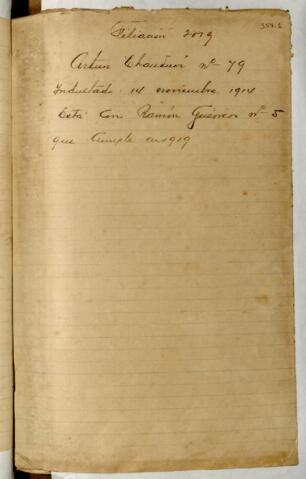 354.1
Filiación 2019
Arturo Chaustini Nº 79
Indultado 14 noviembre 1914
Está con Ramón Guerrero Nº 5
que Cumple en 919